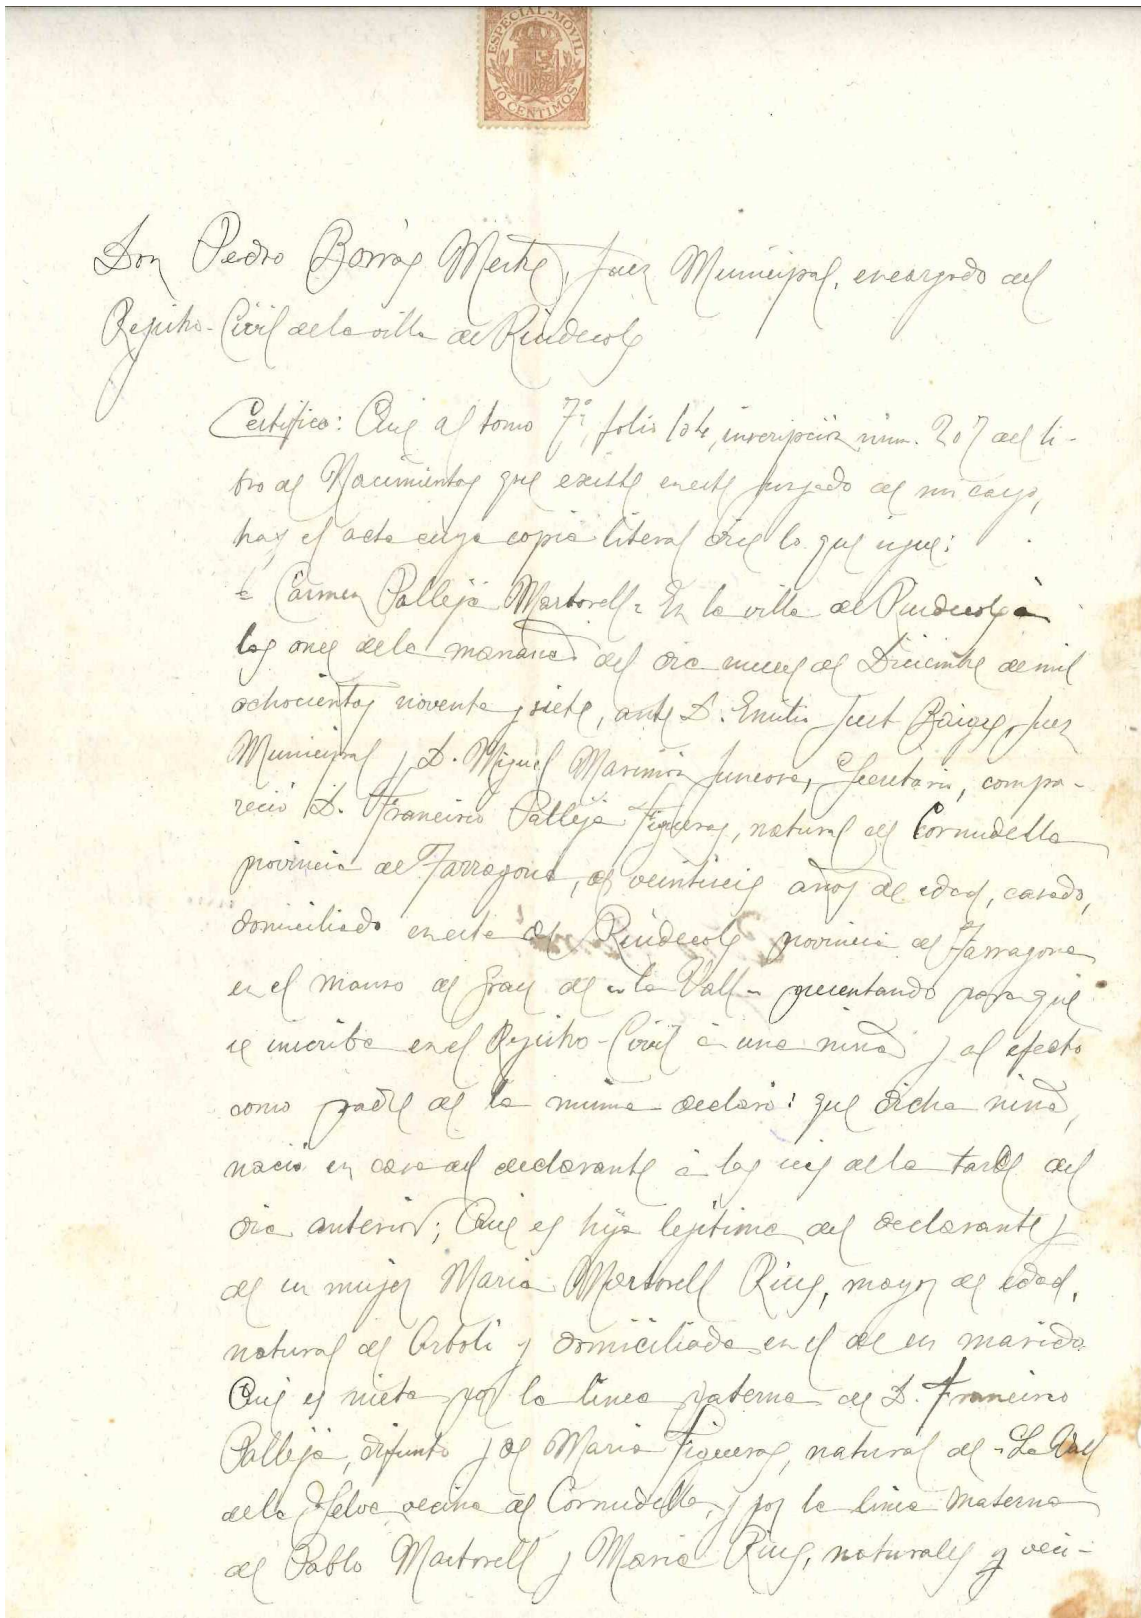 ESPECIAL-MOVIL
10 CENTIMOS
Don Pedro Borrás Mestre, Juez Municipal, encargado del
Registro-Civil de la villa de Riudecols
Certifico: Que al tomo 7º, folio 104, inscripción núm. 207 del li-
bro de Nacimientos que existe en este Juzgado de mi cargo,
hay el acta cuya copia literal dice lo que sigue:
Carmen Pallejá Martorell = En la villa de Riudecols á
las once de la mañana del dia nueve de Diciembre de mil
ochocientos noventa y siete, ante D. Emilio Just Baiges, Juez
Municipal y D. Miguel Marimón Juncosa, Secretario, compa-
reció D. Francisco Pallejá Figueras, natural de Cornudella
provincia de Tarragona, de veintiseis años de edad, casado,
domiciliado en esta de Riudecols provincia de Tarragona
en el manso de de la Vall - presentando para que
se inscriba en el Registro-Civil á una niña y al efecto
como padre de la misma declaró: que dicha niña,
nació en casa del declarante á las seis de la tarde del
dia anterior; Que es hija legítima del declarante y
de su mujer Maria Martorell Rius, mayor de edad,
natural de Arboli y domiciliada en el de su marido.
Que es nieta por la linea paterna de D. Francisco
Pallejá, difunto y de Maria Figueras, natural de La Vall
de la Selva vecina de Cornudella, y por la linea materna
de Pablo Martorell y Maria Rius, naturales y veci-